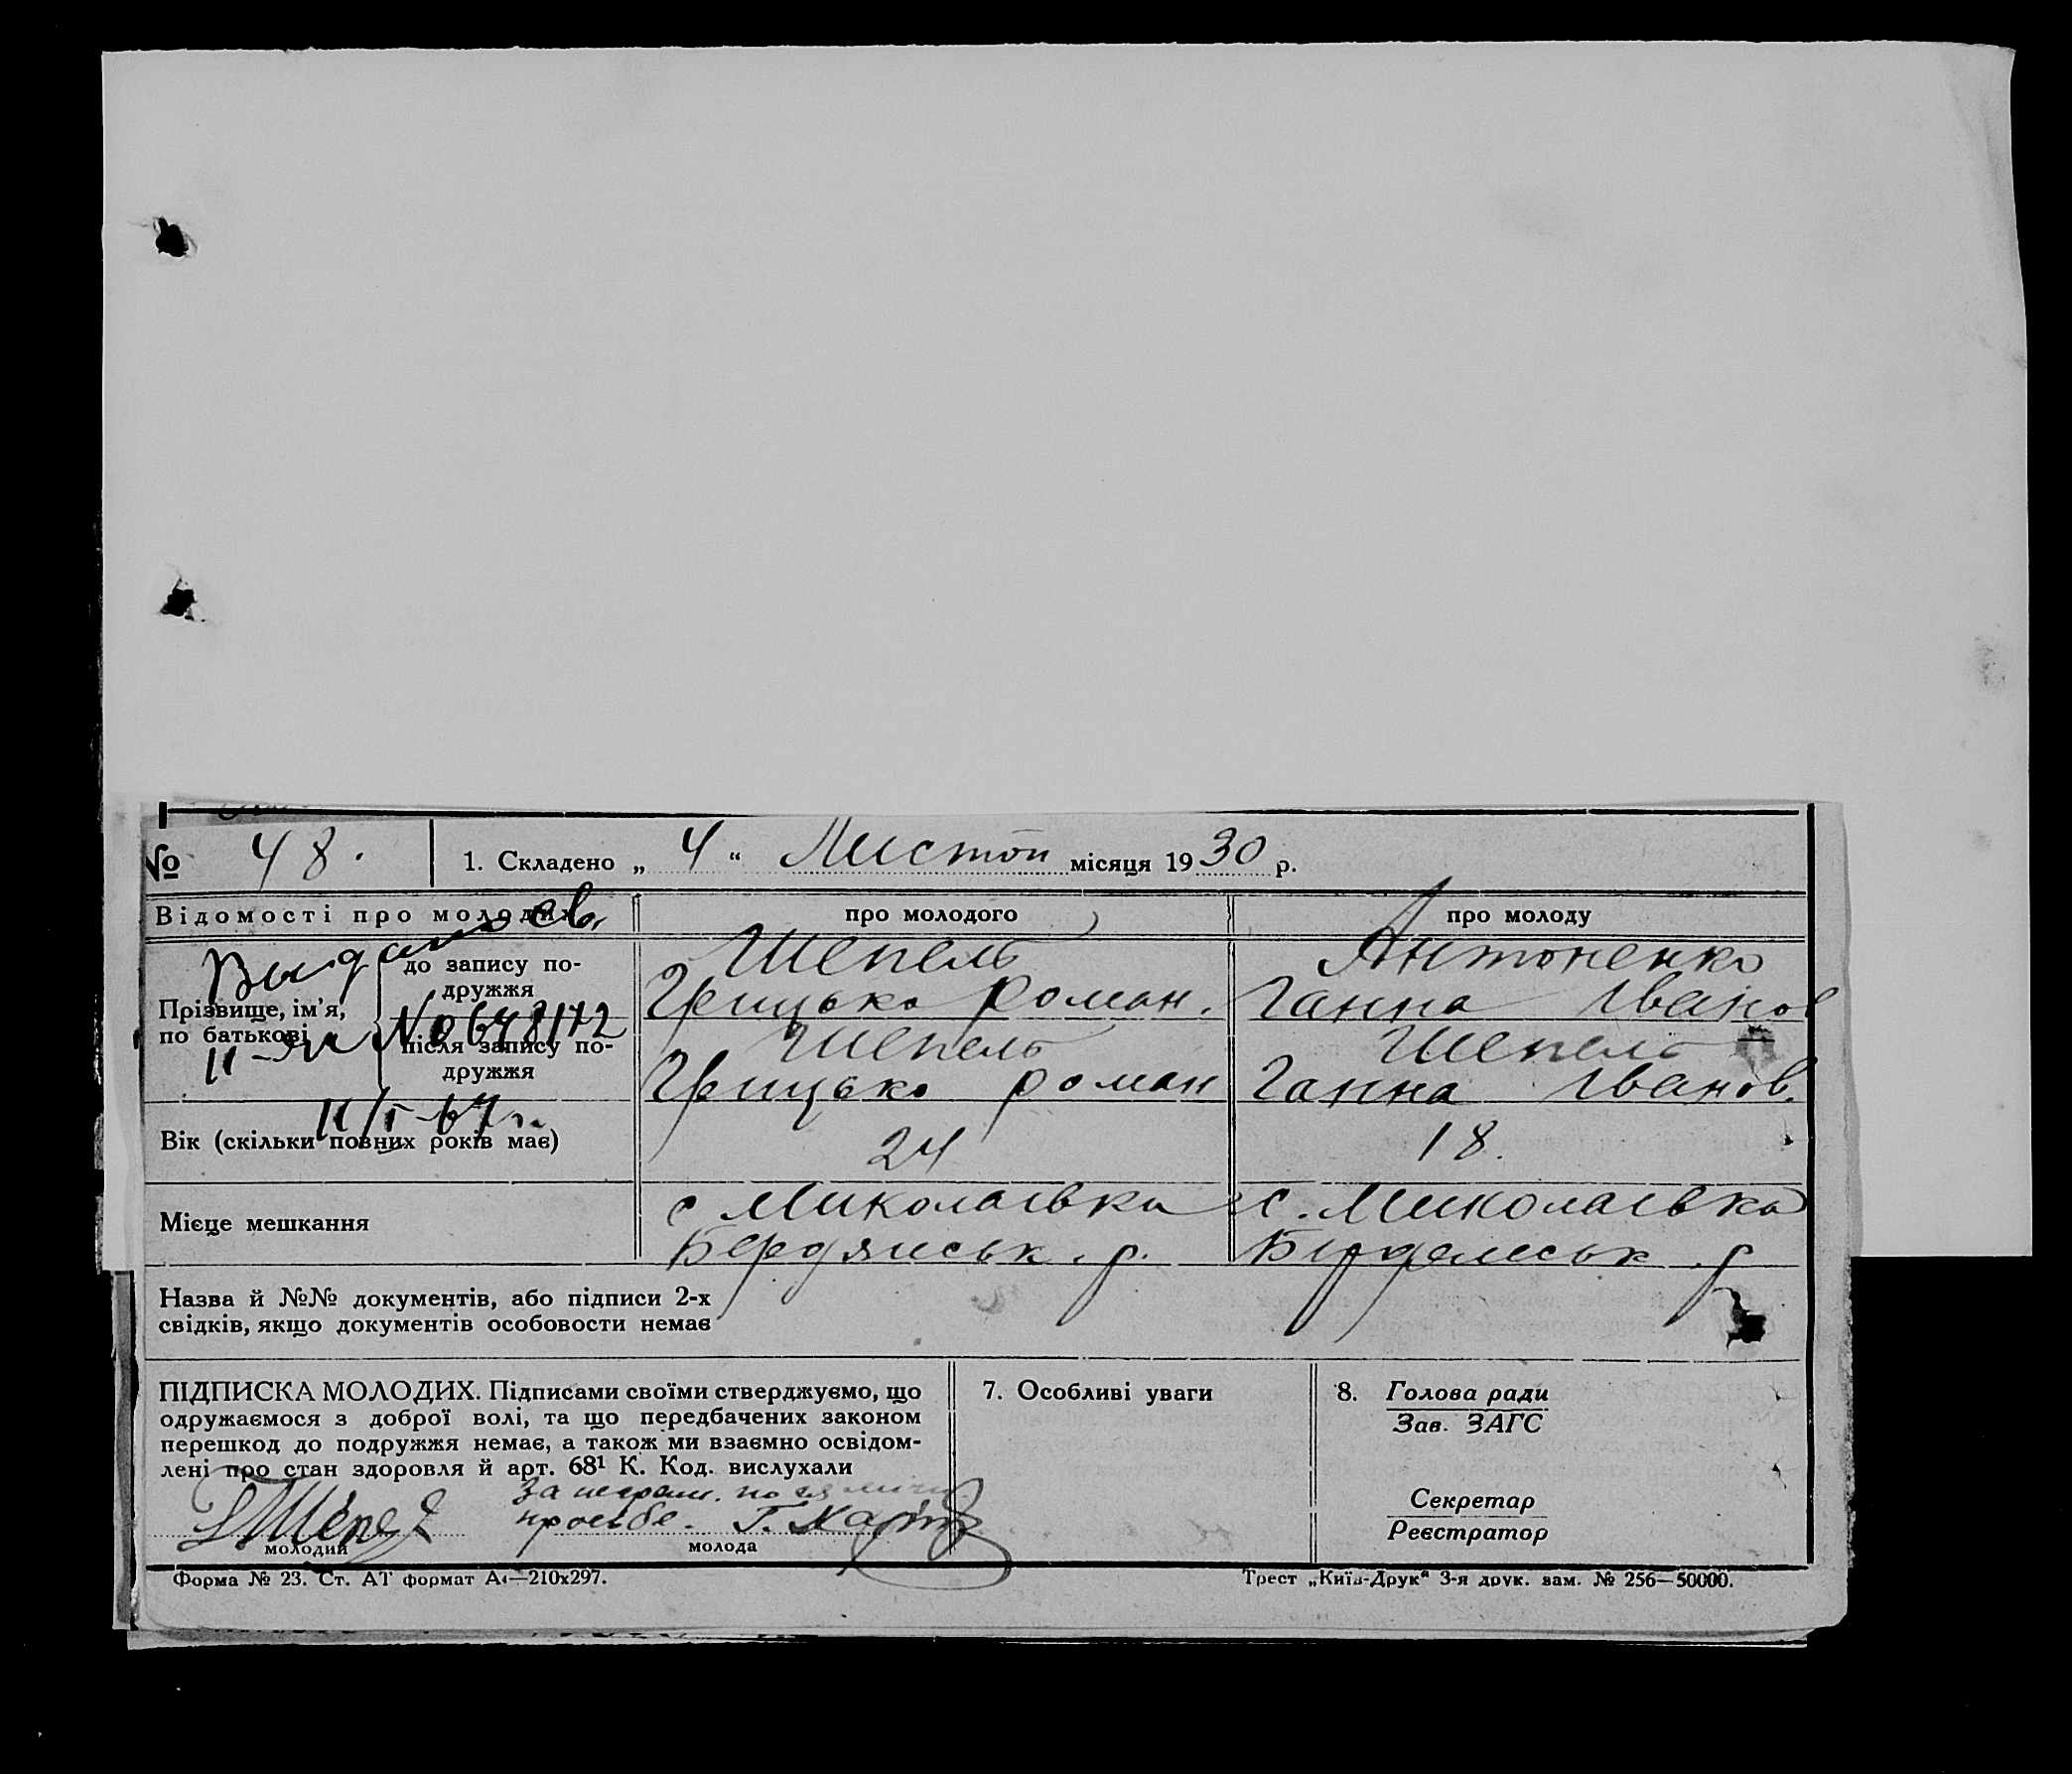 № 48. 1. Складено „ 4 “ Листоп місяця 1930 р.
Відомості про молодих про молодого про молоду
Шепель Антоненко
до запису по-
дружжя
Грицько Роман. Ганна Іванов
Прізвище, ім’я,
по батькові
№ 0648172
Шепель Шепель
після запису по-
дружжя
Грицько Роман Ганна Іванов.
11/I-67 г.
Вік (скільки повних років має) 24 18.
Місце мешкання с Миколаївка с. Миколаївка
Бердянськ. р. Бердянськ р
Назва й №№ документів, або підписи 2-х
свідків, якщо документів особовости немає
ПІДПИСКА МОЛОДИХ. Підписами своїми стверджуємо, що
одружаємося з доброї волі, та що передбачених законом
перешкод до подружжя немає, а також ми взаємно освідом-
лені про стан здоров’я й арт. 68¹ К. Код. вислухали
за неграм. по її личн.
просьбе. Г.
молодий молода
7. Особливі уваги
8. Голова ради
Зав. ЗАГС
Секретар
Реєстратор
Форма № 23. Ст. АТ формат А₄—210х297. Трест „Київ-Друк“ 3-я друк. зам. № 256—50000.